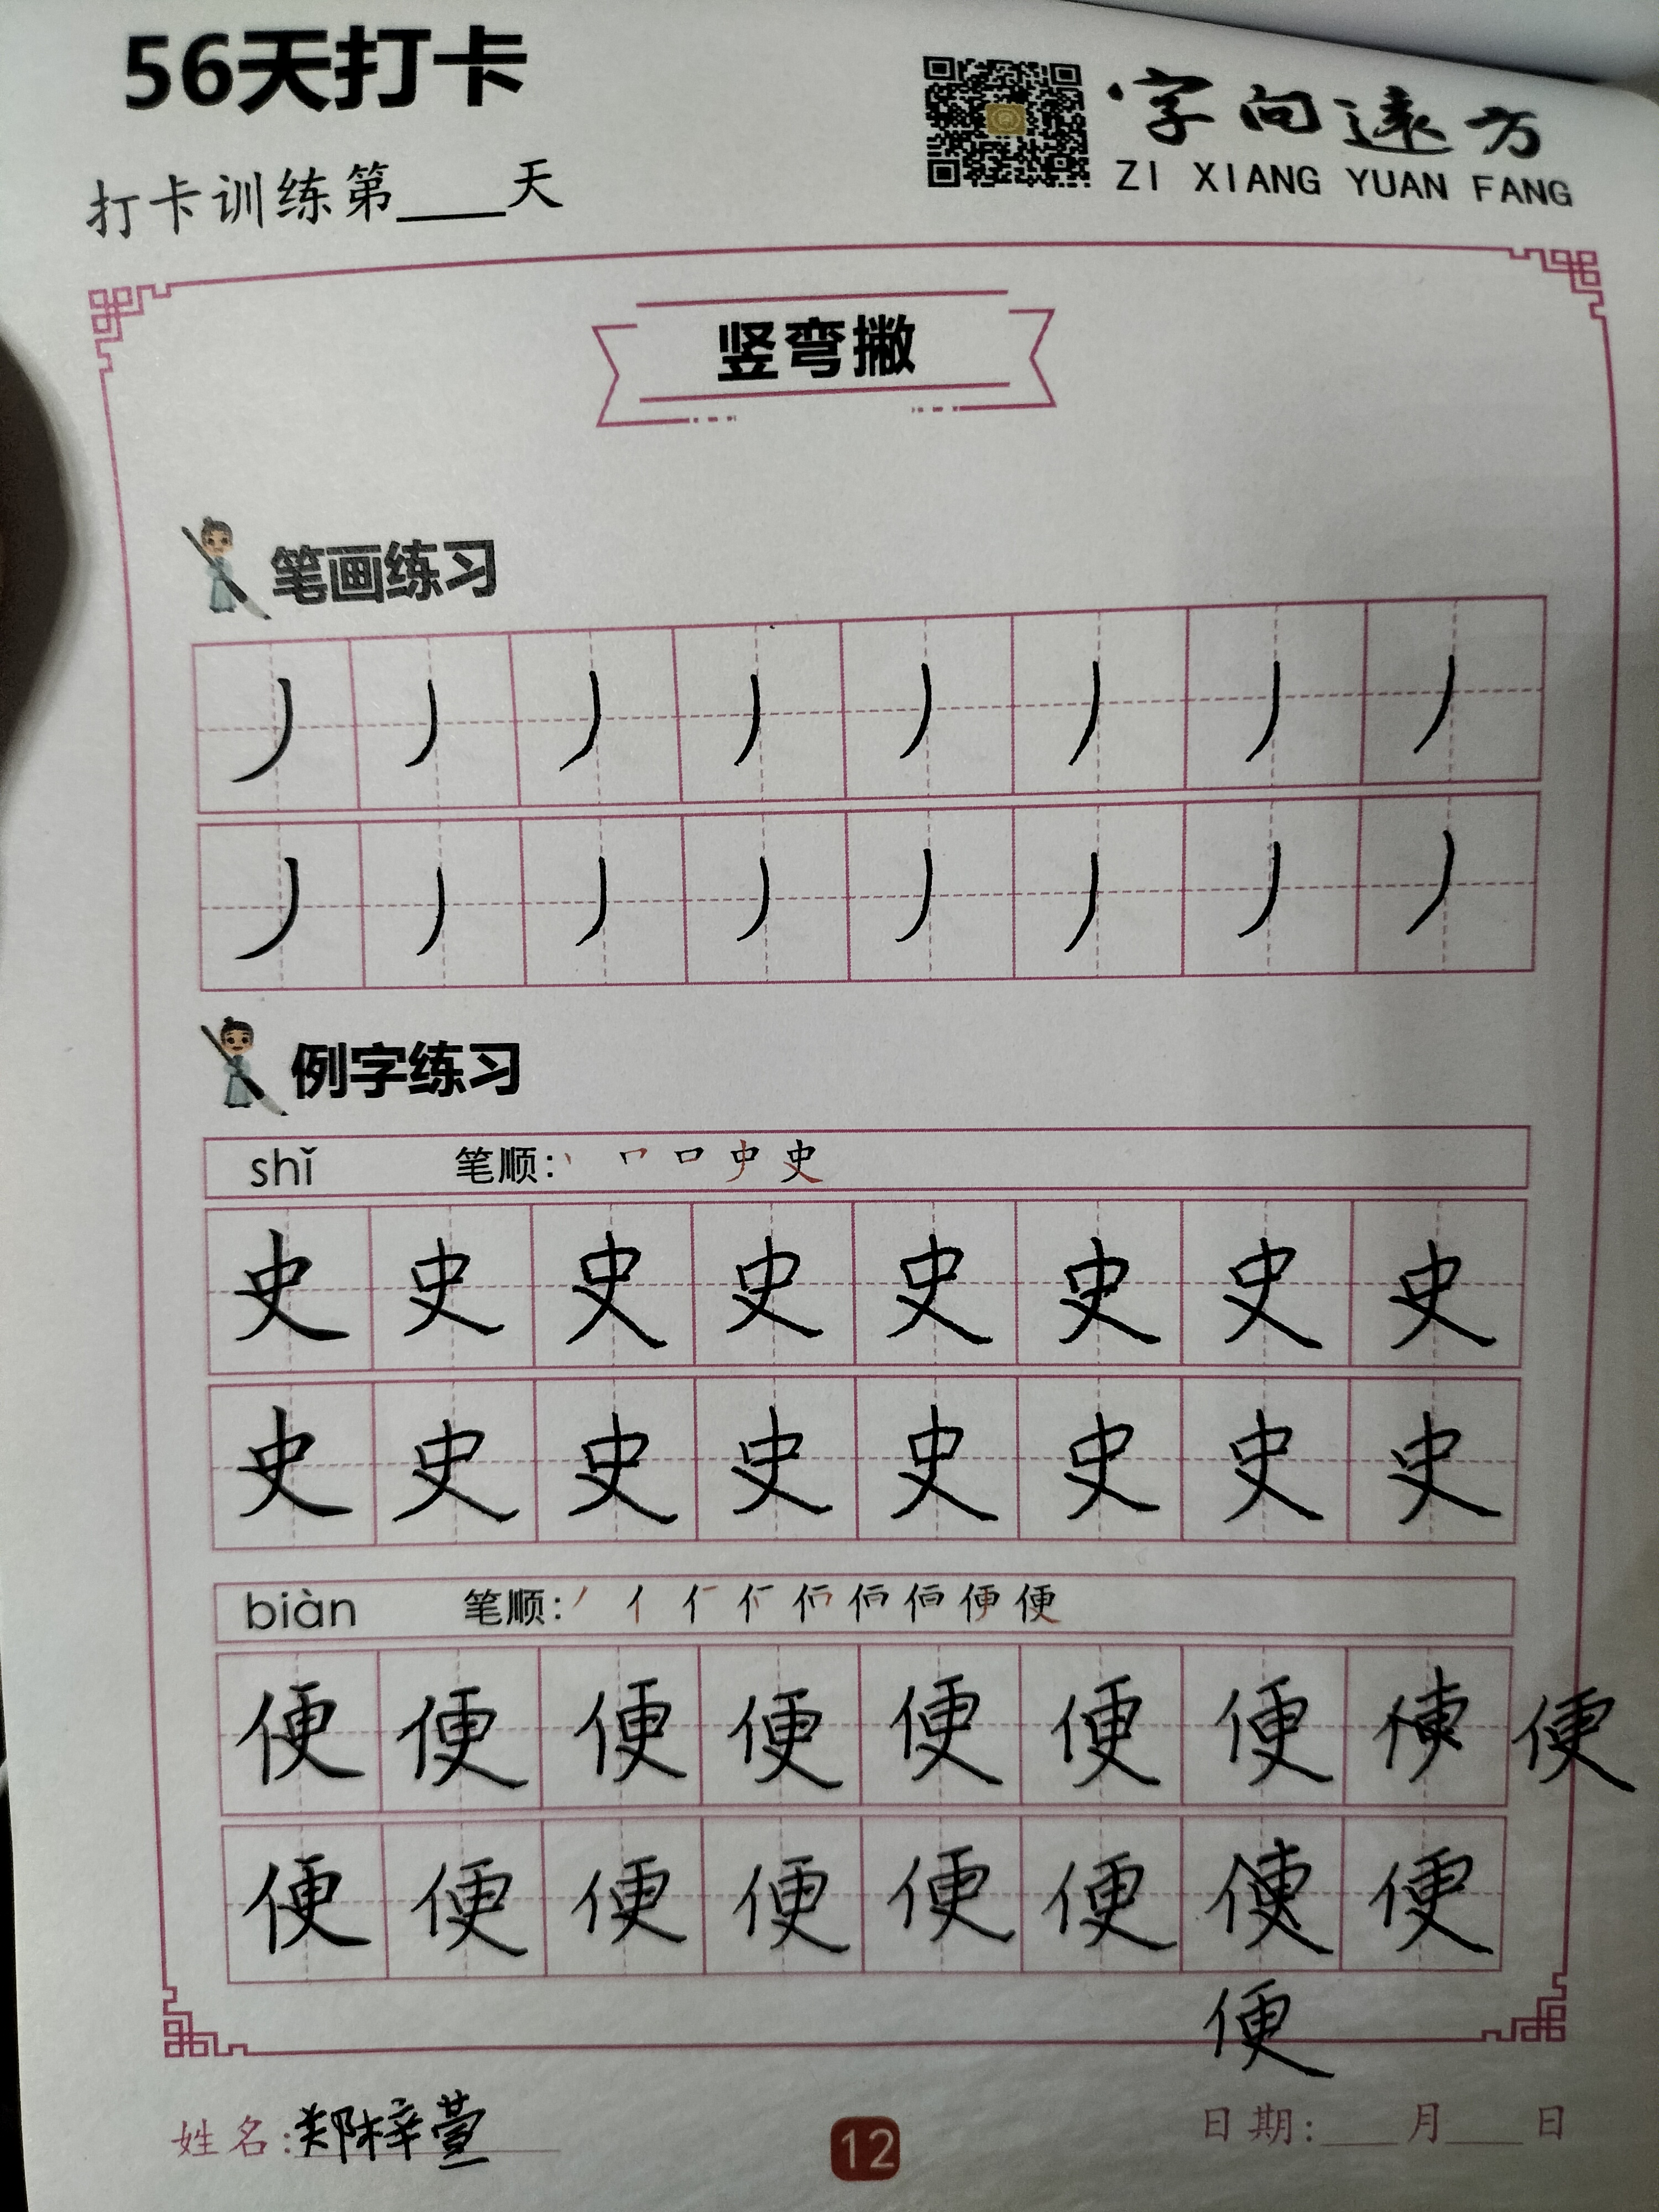 56天打卡
字向远方
ZI XIANG YUAN FANG
打卡训练第____天
竖弯撇
笔画练习
丿 丿 丿 丿 丿 丿 丿 丿
丿 丿 丿 丿 丿 丿 丿 丿
例字练习
shǐ 笔顺:
史 史 史 史 史 史 史 史
史 史 史 史 史 史 史 史
biàn 笔顺:
便 便 便 便 便 便 便 便
便 便 便 便 便 便 便
便
姓名:郑梓萱
12
日期:___月___日